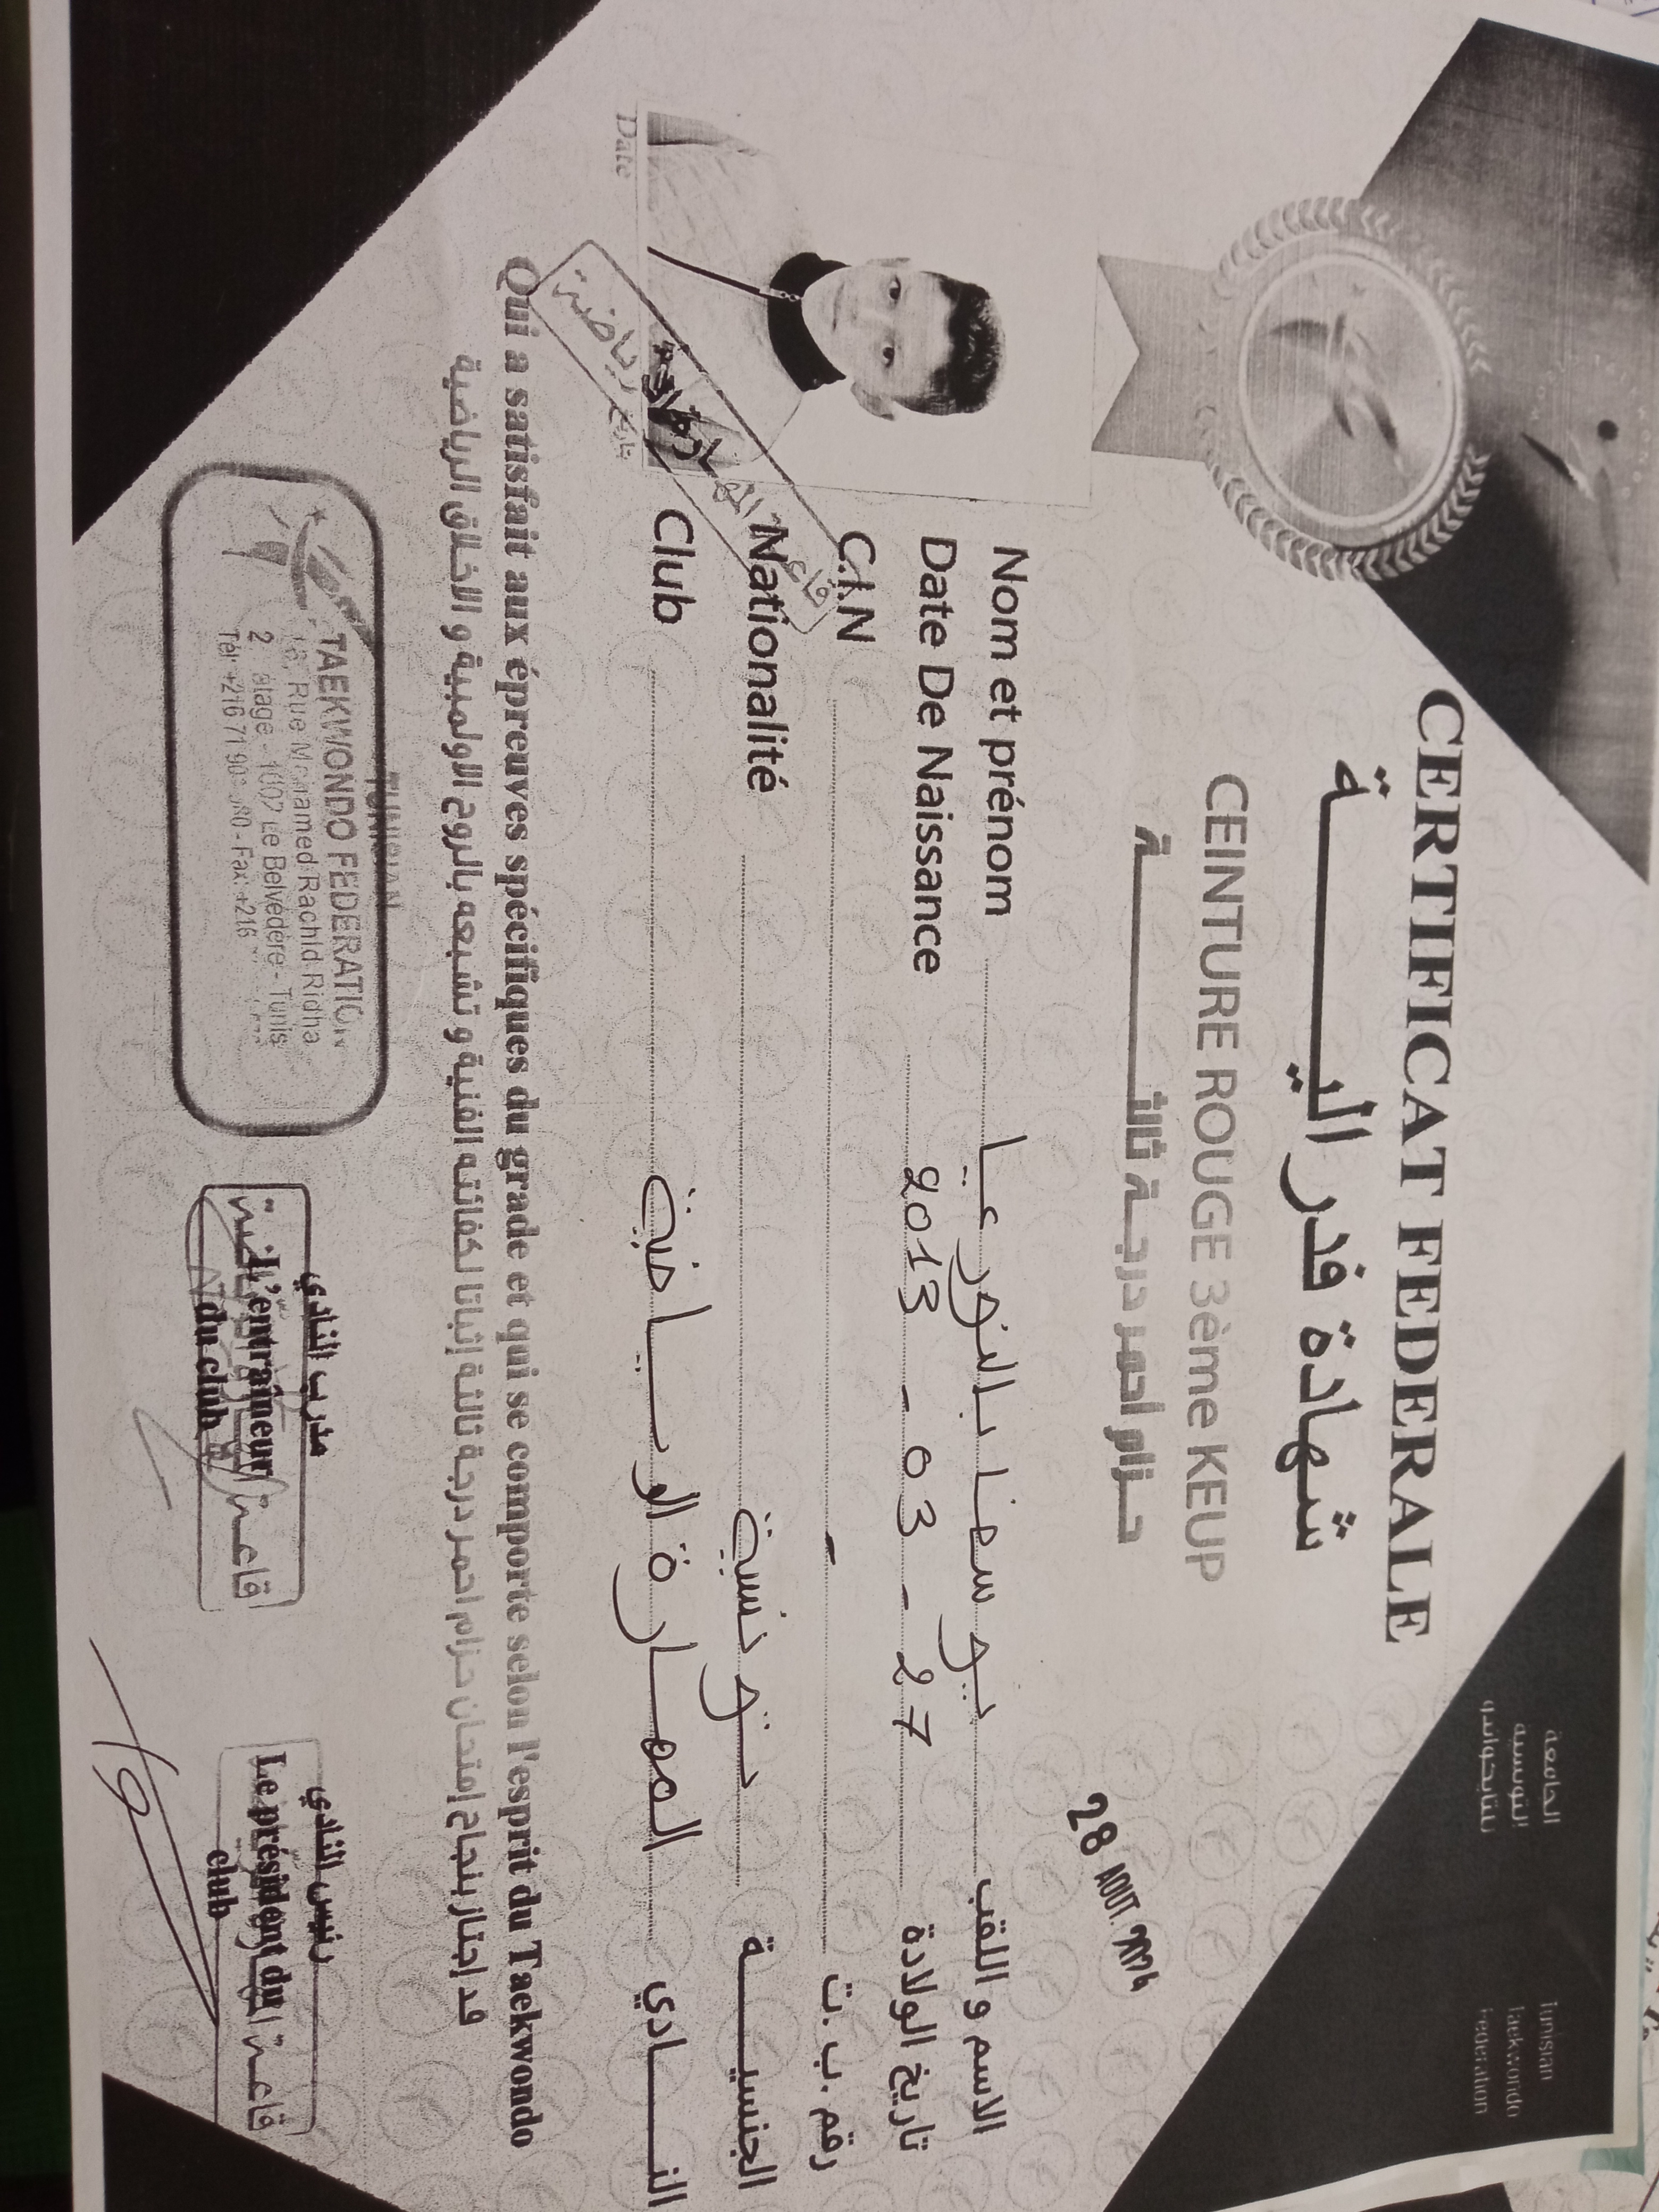 الجامعة
التونسية
للتايكواندو
Tunisian
Taekwondo
Federation
CERTIFICAT FEDERALE
شهادة فدراليـــــــة
CEINTURE ROUGE 3ème KEUP
حزام احمر درجة ثالثـــــــة
28 AOUT. 2024
Nom et prénom يوسف بالنور عيا الاسم و اللقب
Date De Naissance 2013 - 03 - 27 تاريخ الولادة
C.I.N - رقم ب.ت
Nationalité تونسية الجنسيـــــة
Club المهارة الرياضية النـــــادي
Date تاريخ
Qui a satisfait aux épreuves spécifiques du grade et qui se comporte selon l'esprit du Taekwondo
قد إجتاز بنجاح إمتحان حزام احمر درجة ثالثة إثباتا لكفائته الفنية و تشبعه بالروح الاولمبية و الاخلاق الرياضية
TUNISIAN
TAEKWONDO FEDERATION
Rue Mohamed Rachid Ridha
2 étage - 1002 Le Belvédère - Tunis
مدرب النادي
L'entraîneur
du club
رئيس النادي
Le président du
club